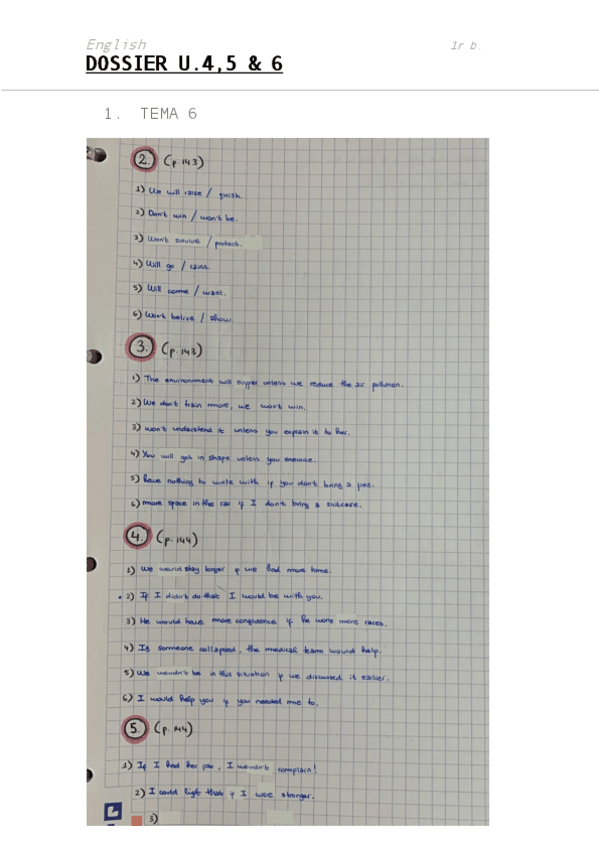 English
1r b.
DOSSIER U.4,5 & 6
1. TEMA 6
2. (p.143)
1) We will raise / finish.
2) Don't win / won't be.
3) Won't survive / protect.
4) Will go / rains.
5) Will come / want.
6) Won't belive / show.
3. (p.143)
1) The environment will suffer unless we reduce the air pollution.
2) We don't train more, we won't win.
3) won't understend it unless you explain it to her.
4) You will get in shape unless you exercise.
5) have nothing to write with if you don't bring a pen.
6) more space in the car if I don't bring a suitcase.
4. (p.144)
1) We would stay longer if we had more time.
2) If I didn't do that I would be with you.
3) He would have more confidence if he wons more races.
4) If someone collapsed, the medical team would help.
5) We wouldn't be in this situation if we discussed it earlier.
6) I would help you if you needed me to.
5. (p.144)
1) If I had her job, I wouldn't complain!
2) I could light that if I was stronger.
3)